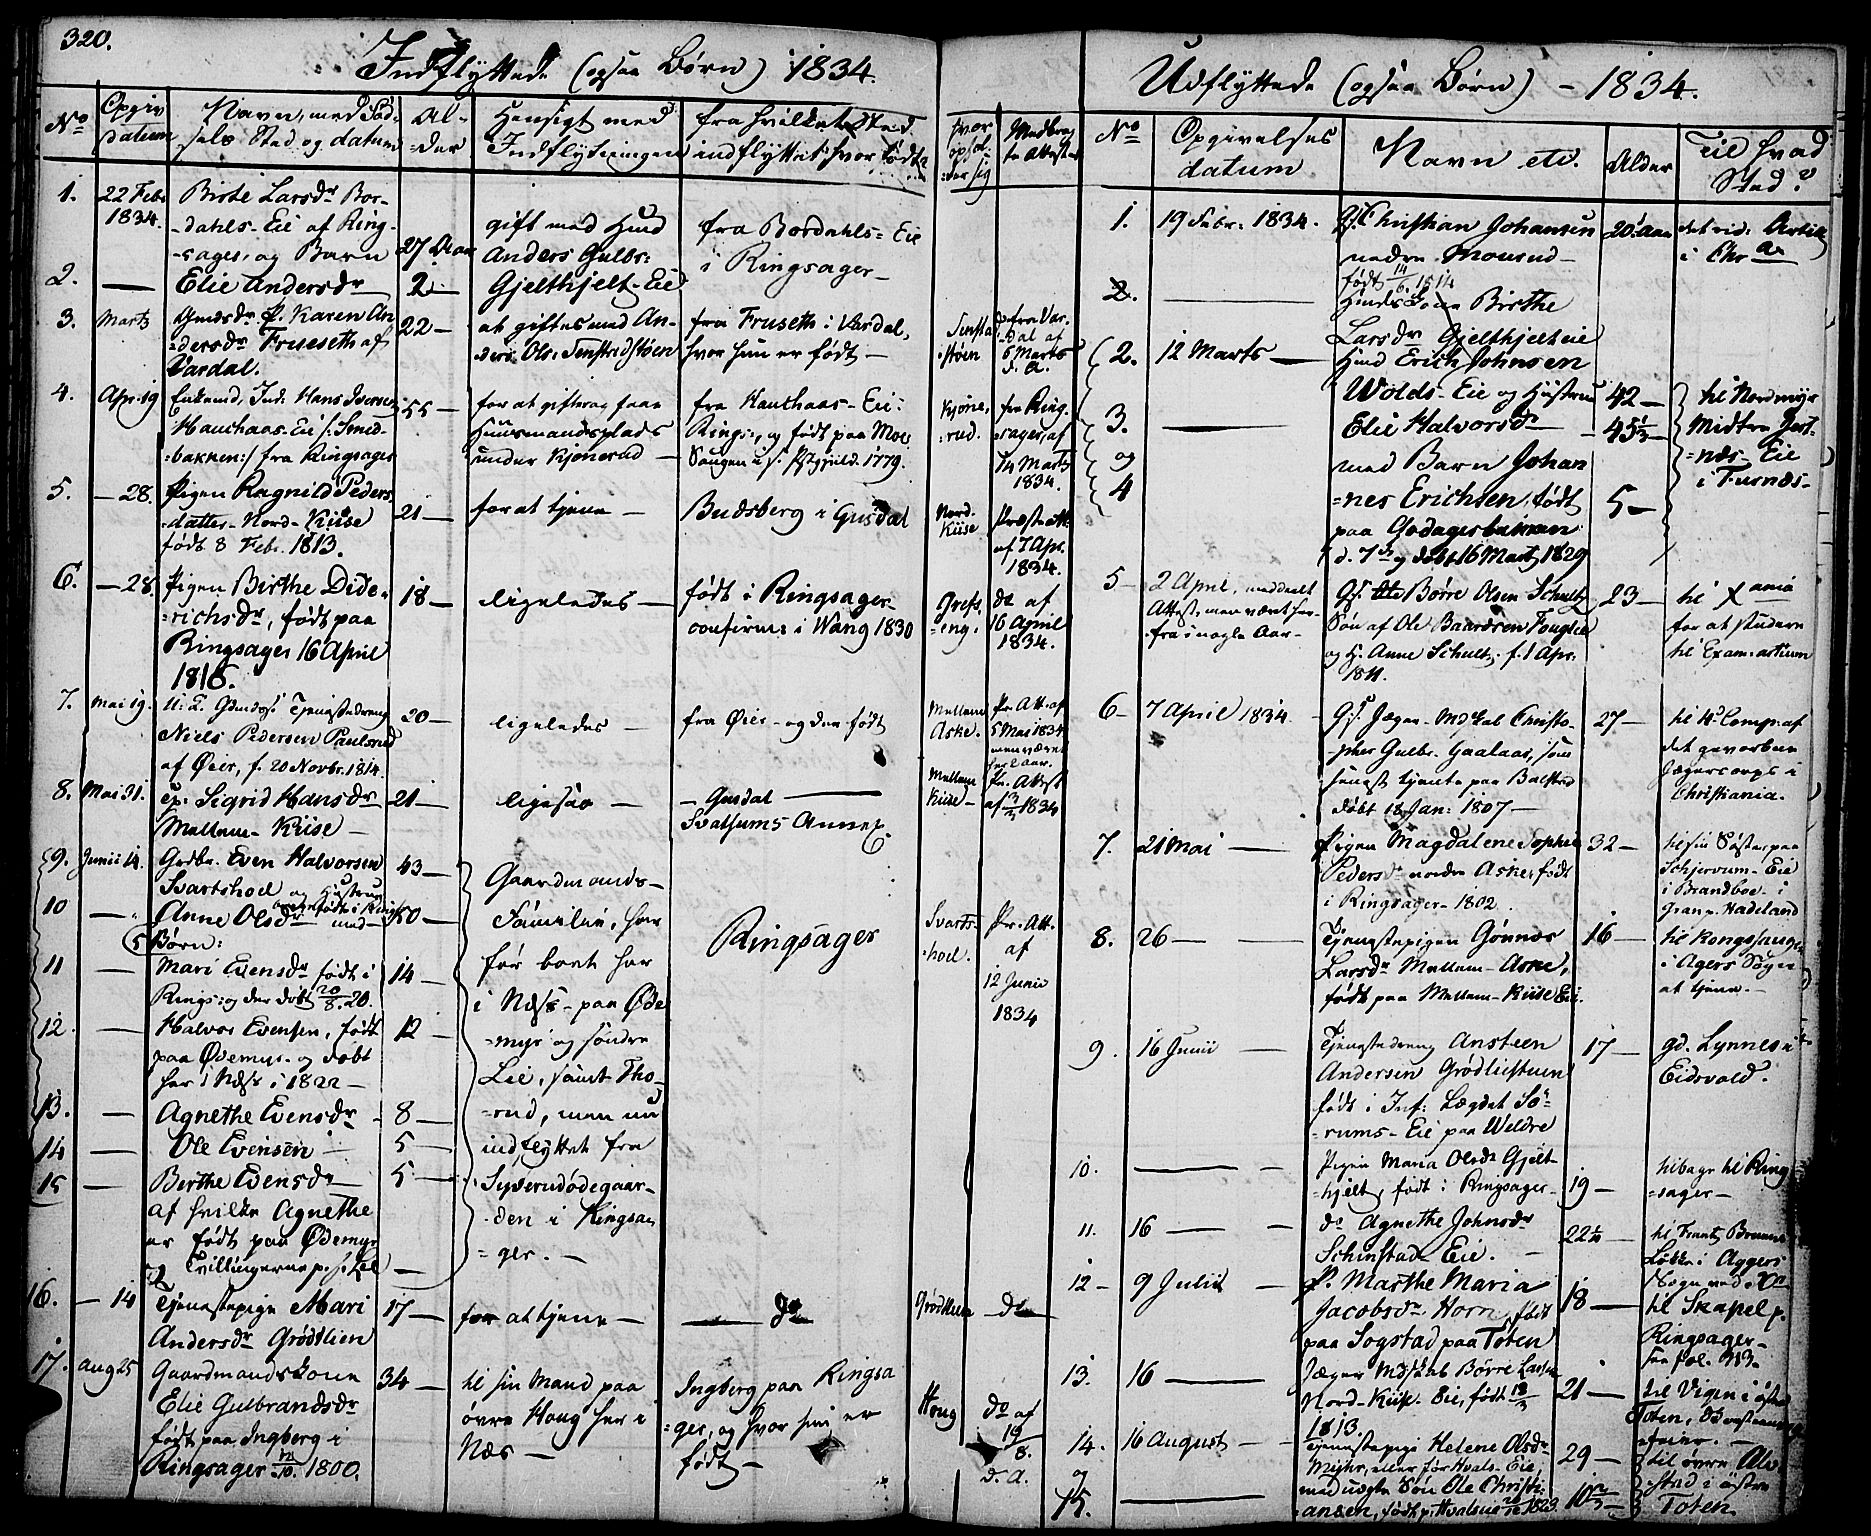 320.
Indflyttede (ogsaa Børn) 1834.
No
Opgiv datum
Navn, med Fødsels Sted og datum
Alder
Hensigt med Indflytningen
fra hvilket Sted indflyttet, hvor født
hvor opholder sig
Medbragte Attester
1.
22 Febr 1834.
Birte Larsdr Bor-
dahls-Eie af Ring-
sager, og Barn
27 Aar
gift med Huusm
Anders Gulbr:
Gjelthjelt-Eie
fra Bordahls-Eie
i Ringsager-
2.
Elie Andersdr
2
3.
Marts
P. Karen An-
dersdr Fruseth af
Vardal.
22
at giftes med An-
ders Ols: Tenstridstøen
fra Fruseth i Vardal,
hvor hun er født
fra Var-
dal af
6 Marts
d. A.
4.
Apr. 19
Enkemd, Ind: Hans Iversen
Hauchaas-Eie /: Smed-
bakken :/ fra Ringsager
55
for at giftes og faae
Huusmandsplads
under Kjonerud
fra Hauchaas-Eie:
Rings:, og født paa Moe
1779.
Kjone-
rud.
fra Ring-
sager, af
14 Marts
1834.
5.
28.
Pigen Ragnild Peders
datter-Nord-Kiise
født 8 Febr. 1813.
21
for at tjene
Budsberg i Gusdal
Nord-
Kiise
Præsteatt
af 7 Apr.
1834.
6.
28.
Pigen Birthe Dide-
richsdr, født paa
Ringsager 16 April
1816.
18
ligeledes
født i Ringsager
confirm: i Wang 1830
Grefs-
eng.
do af
16 April
1834.
7.
Mai 19.
Tjenestedreng
Niels Pedersen Paulsrud
af Øier, f. 20 Novbr. 1814.
20
ligeledes
fra Øier-og der født
Mellem
Aske.
Pr. Att. af
5 Mai 1834
men været
her 1 Aar.
8.
Mai 31.
Tp. Sigrid Hansdr
Mellem-Kiise
21
ligesaa
Gusdal
Svatsums Annex.
Mellem
Kiise
Pr. Attest
1834
9.
Junii 14.
Grdbr. Even Halvorsen
Svartshoel og Hustrue
43
Gaardmands-
Familie, har
før boet her
i Næss-paa Øde
myr og søndre
Lie, samt Tho-
rud, men nu
indflyttet fra
Syverudødegaar-
den i Ringsa-
ger.
Ringsager
Svarts-
hoel.
Pr. Att.
af
12 Junii
1834
10
Anne Olsdr med
50
5 Børn:
11
Mari Evensdr født i
Rings: og der døbt 20/8.20.
14
12.
Halvor Evensen, født
paa Ødemyr-og døbt
her i Næss i 1822
12
13.
Agnethe Evensdr
8
14
Ole Evensen
5
15
Berthe Evensdr
5
af hvilke Agnethe
er født paa Ødemyr
og Tvillingerne p. s. Lie
16.
14
Tjenestepige Mari
Andersdr Grødtlien
17
for at tjene
do
Grødtlien
do
17.
Aug 25
Gaardmandskone
Elie Gulbrandsdr
født paa Ingberg i
Ringsager 1800.
34
til sin Mand paa
øvre Houg her i
Næs
Ingberg paa Ringsa
ger, og hvor hun er
født
Houg
do af
19/8.
d. A.
Udflyttede (ogsaa Børn) - 1834.
No
Opgivelses datum
Navn etc.
Alder
Til hvad Sted?
1.
19 Febr: 1834.
Christian Johansen
nedre Mousrud
født 14/6. 1814
20 Aar
i Chra
2.
Huusm:kone Birthe
Larsdr Gjelthjelteie
2.
12 Marts
Huusm Erich Johnsen
Wolds-Eie og Hustrue
42
til Nordmyr
Midtre Jest-
næs-Eie
i Furnæs-
3.
Elie Halvorsdr
45½
og
4
med Barn Johan
nes Erichsen, født
paa Godagerbakken
d. 7de og døbt 16 Marts 1829
5
5
2 April, meddeelt
Attest, men været her-
fra i nogle Aar-
Børre Olsen Schultz
Søn af Ole Baardsen Fougler
og H. Anne Schultz. f. 1 Apr.
1811.
23
til Xania
for at studere
til Exam: artium
6
7 April 1834
Gs. Jæger-Mdskab Christo-
pher Gulbr. Gaalaas, som
senest tjente paa Balstad
døbt 18 Jan: 1807
27
til 4de Comp: af
det gevorbne
Jægercorps i
Christiania.
7.
21 Mai
Pigen Magdalene Sophie
Pedersdr nordre Aske, født
i Ringsager 1802.
32
til sin Søster, paa
Schjervum-Eie
i Brandboe-i
Gran p. Hadeland
8.
26
Tjenestepigen Gønnor
Larsdr Mellem-Aske,
født paa Mellem-Kiise Eie.
16
til Kongshaugen
i Agers Sogn
at tjene.
9.
16 Junii
Tjenestedreng Ansteen
Andersen Grødliestuen
født i Inf: Lægdet Sø-
rums-Eie paa Weldre
17
gd. Lynnes i
Eidsvold.
10.
Pigen Maria Olsdr Gjelt-
hjelt, født i Ringsager
19
tilbage til Ring-
sager
11.
16
do Agnethe Johnsdr
Schinstad Eie.
22½
til
Løkke i Aggers
Sogn ved Xa
12
9 Julii
P. Marthe Maria
Jacobsdr Horn, født
paa Sogstad paa Toten
18
til Skapel p.
Ringsager-
see fol. 313.
13.
16
Jæger Mdskab Børre Larsen
Nord-Kiise-Eie, født
1813.
21
til Vigen i østre
Toten,
14.
16 August
Tjenestepige Helene Olsdr
Myhr, eller før Hvals-Eie
29
til øvre Alv-
stad i østre
Toten
og
15.
med uægte Søn Ole Christi-
ansen, født p: Hvalseie 1823.
10